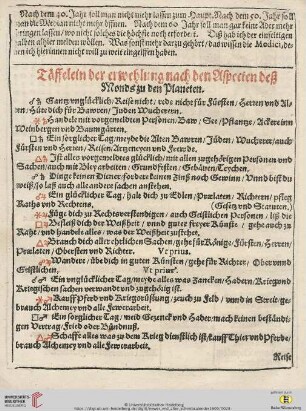 Nach dem 40. Jahr soll man nicht mehr lassen zum Haupt. Nach dem 50. Jahr soll
man die Median nicht mehr öffnen. Nach dem 60 Jahr soll man gar keine Ader mehr
springen lassen/ wo nicht solches die höchste noth erfordert.
halben alhier melden wöllen. Was sonst mehr darzu gehört/ das wissen die Medici, de-
nen ich hierinnen nicht zu weit eingriffen haben.
Täffelein der erwehlung nach den Aspecten deß
Monds zu den Planeten.
Gantz vnglücklich/ Reise nicht/ rede nicht für Fürsten/ Herren vnd Al-
ten/ Hüte dich für Bawren/ Juden Wucherern.
Handle mit vorgemeldten Personen/ Baw/ See/ Pflantze/ Ackere inn
Weinbergen vnd Baumgärten.
Ein sorglicher Tag/ meyde die Alten Bawren/ Jüden/ Wucherer/ auch
Fürsten vnd Herren/ Reiß/ Artzeneyen vnd Freude.
Ist alles vorgemeldtes glücklich/ mit allen zugehörigen Personen vnd
Sachen/ auch mit Bley arbeiten/ Grundfesten/ Gebäwen/ Teychen.
Dinge keinen Diener/ fordere keinen Zinß noch Gewinn/ Vnd biß du
weiß/ so laß auch alle andere sachen anstehen.
Ein glücklicher Tag/ halt dich zu Edlen/ Prælaten/ Richtern/ pfleg
Raths vnd Rechtens.
füge dich zu Rechtsverstendigen/ auch Geistlichen Personen
Befleiß dich der Weißheit/ vnnd guter freyer Künste/ gehe auch zu
Raht/ vnd handele alles/ was der Weißheit zustehet.
Brauch dich aller ehrlichen Sachen/ gehe für Könige/ Fürsten/ Herren
Prælaten/ Obersten vnd Richter. Vt prius.
Wandere/ übe dich in guten Künsten/ gehe für Richter/ Ober vnnd
Geistlichen. Vt prius.
Ein vnglücklicher Tag/ meyde alles was Zancken/ Hadern/ Krieg vnd
Kriegischen sachen verwandt vnd zugehörig ist.
Kauff Pferd vnd Kriegsrüstung/ zeuch zu Feld/ vnnd in Streit/ ge-
brauch Alchemey vnd alle Fewerarbeit.
Ein sorglicher Tag/ meid Gezenck vnd Hader/ mach keinen bestendi-
gen Vertrag/ Fried oder Bündnuß.
Schaffe alles was zu dem Krieg dienstlich ist/ kauff Thier vnd Pferd/
brauch Alchemey vnd alle Fewerarbeit.
Reise